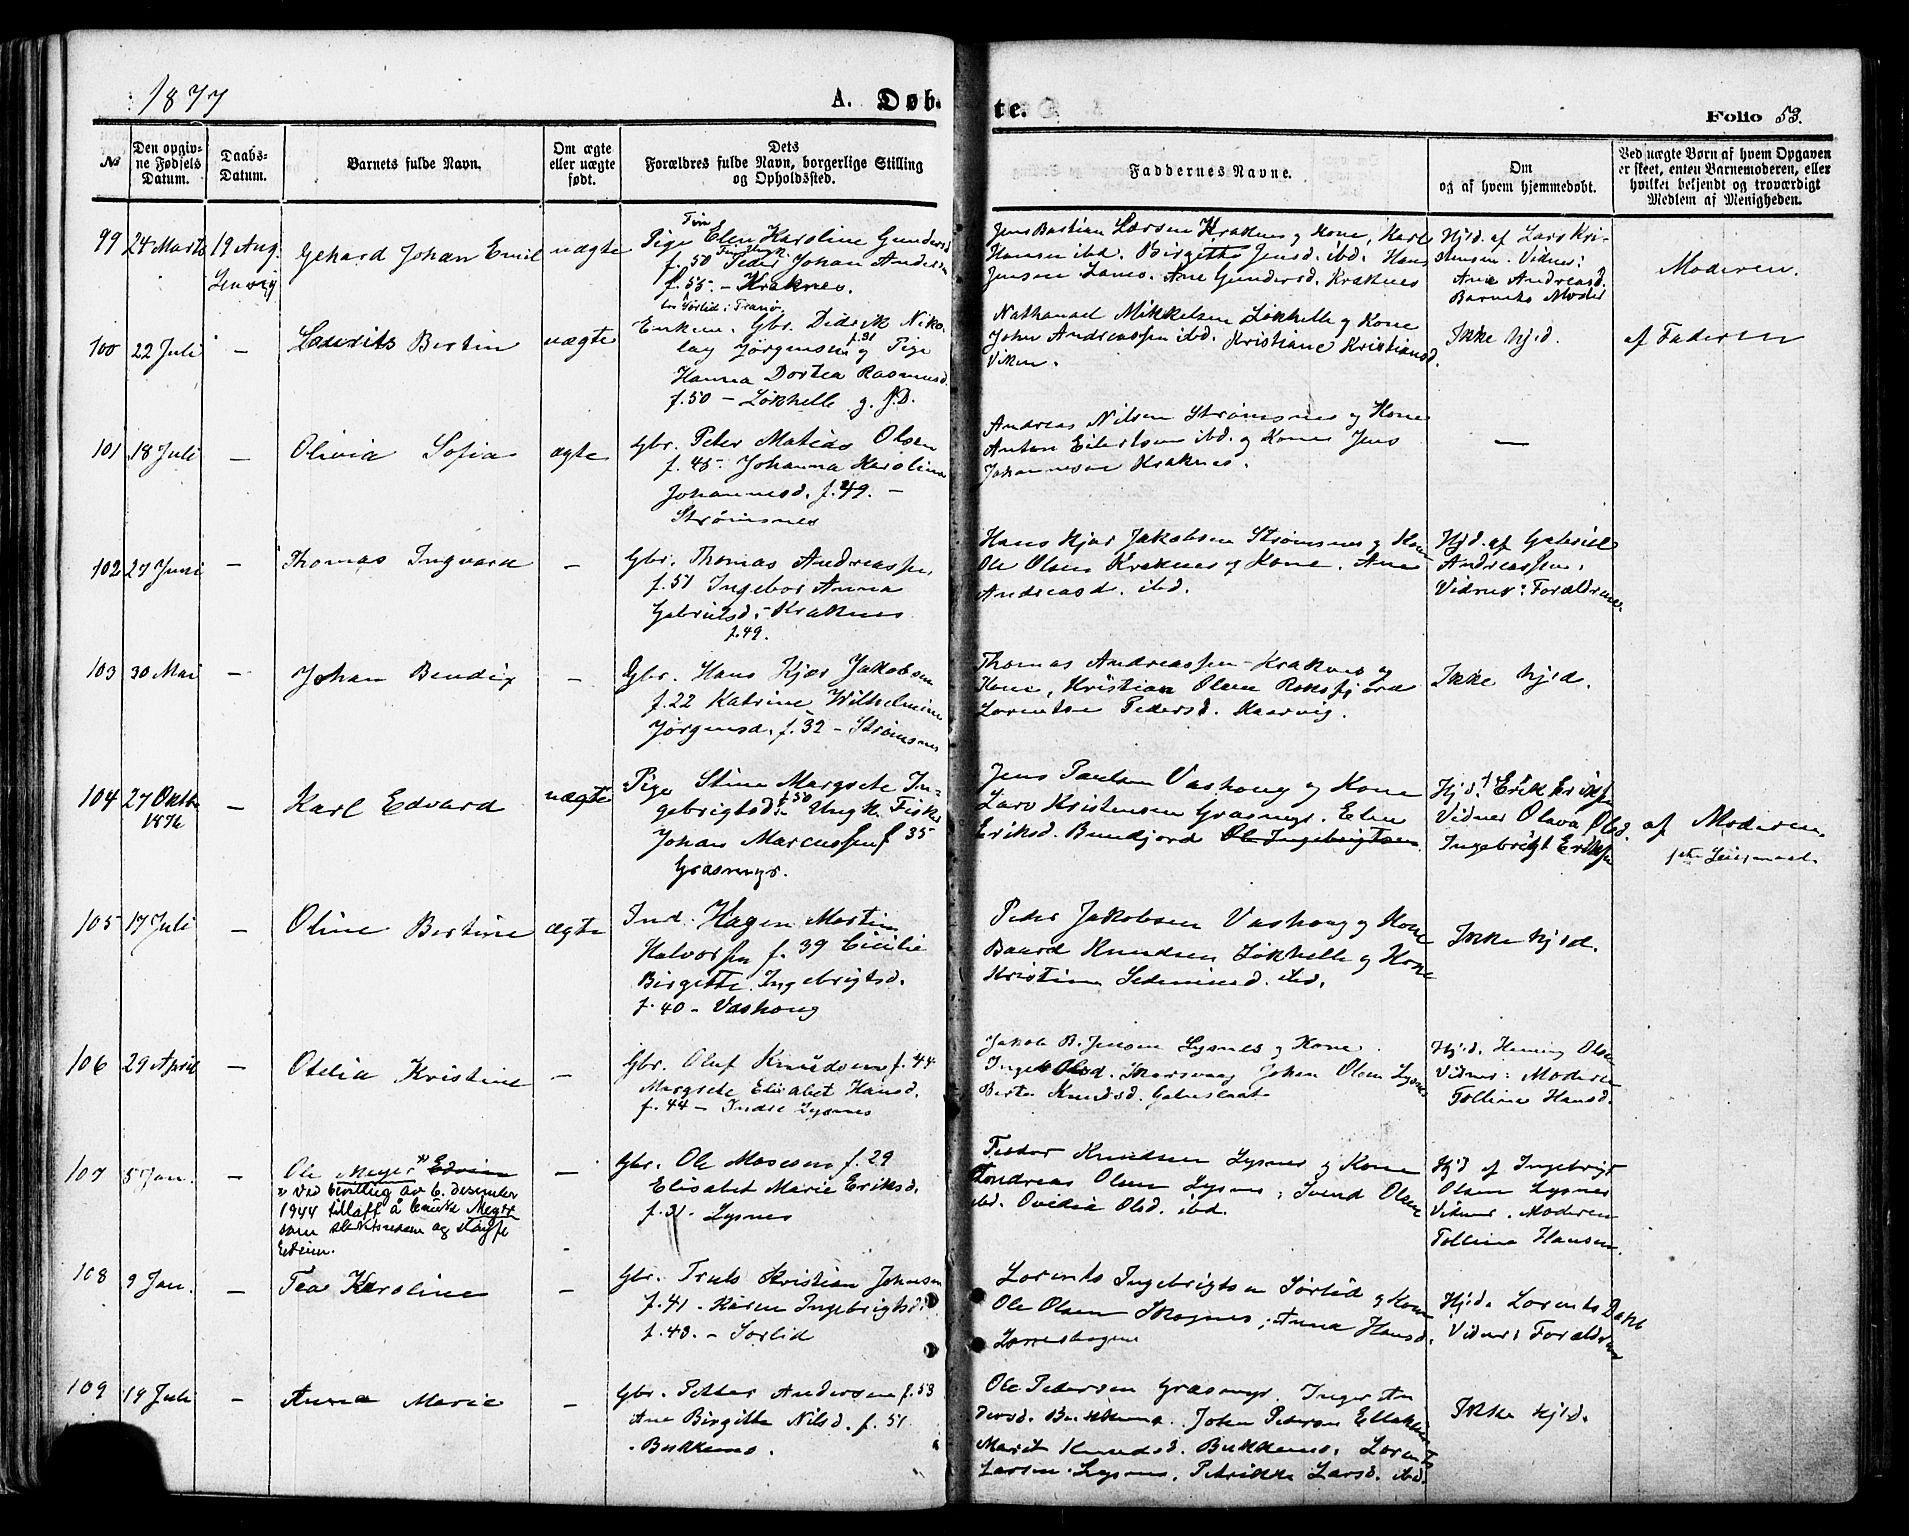 1877
A. Døb-
te.
Folio 53.
№
Den opgiv-
ne Fødsels
Datum.
Daabs-
Datum.
Barnets fulde Navn.
Om ægte
eller uægte
født.
Dets
Forældres fulde Navn, borgerlige Stilling
og Opholdssted.
Faddernes Navne.
Om
og af hvem hjemmedøbt.
Ved uægte Børn af hvem Opgaven
er skeet, enten Barnemoderen, eller
hvilket bekjendt og troværdigt
Medlem af Menigheden.
99
24 Marts
19 Aug.
Lenvig
Gehard Johan Emil
uægte
Pige Elen Karoline Gundersd
f. 50 Peder Johan Anders
f. 55 - Kraknes.
Jens Bastian Larsen Kraknes og Kone, Karl
Hansen ibd. Birgitte Jensd. ibd. Hans
Jensen Ane Gundersd. Kraknes
Hjd. af Lars Kri-
stensen. Vidner:
Ane Andreasd.
Barnets Moder
Moderen.
100
22 Juli
-
Laurits Bertin
uægte
Enkem. Gbr. Didrik Niko
lay Jørgensen f. 31 og Pige
Hanna Dortea Rasmusd.
f. 50 - Løkhelle
Nathanael Mikkelsen Løkhelle og Kone
John Andreassen ibd. Kristiane Kristiansd.
Viken.
Ikke hjd.
af Faderen
101
18 Juli
-
Olivia Sofia
ægte
Gbr. Peter Matias Olsen
f. 45 - Johanna Karolina
Johannesd. f. 49. -
Strømsnes
Andreas Nilsen Strømsnes og Kone
Anton Eilertsen ibd. og Kone Jens
Johannesen Kraknes.
-
102
27 Juni
-
Thomas Ingvard
-
Gbr. Thomas Andreassen
f. 51 Ingebor Anna
Gabrielsd. - Kraknes
f. 49.
Hans Kjær Jakobsen Strømsnes og Kone
Ole Olsen Kraknes og Kone. Ane
Andreasd. ibd.
Hjd. af Gabriel
Andreassen.
Vidner: Forældrene
103
30 Mai
-
Johan Bendix
-
Gbr. Hans Kjær Jakobsen
f. 22 Katrine Wilhelmine
Jørgensd. f. 32 - Strømsnes
Thomas Andreassen - Kraknes og
Kone, Kristian Olsen Roksfjord
Lorentse Pedersd. Kaarvig.
Ikke hjd.
104
27 Oktbr
1876
-
Karl Edvard
uægte
Pige Stine Margrete In-
gebrigtsd. f. 50 - Ungk. Fisker
Johan Marcussen f 35
Grasmyr.
Jens Paulsen Vashoug og Kone
Lars Kristensen Grasmyr. Elen
Eriksd. Bundjord Ole Ingebrigtsen
Hjd. Erik Eriksen
Vidner Olava Olsd.
Ingebrigt Eriksen
af Moderen
105
17 Juli
-
Oline Bertine
ægte
Ind. Hagen Martin
Halvorsen f. 39 Cicilie
Birgitte Ingebrigtsd.
f. 40 - Vashoug
Peder Jakobsen Vashoug og Kone
Baard Knudsen Løkhelle og Kone
Kristine ibd.
Ikke hjd.
106
29 April
-
Otelia Kristine
-
Gbr. Oluf Knudsen f. 44
Margrete Elisabet Hansd.
f. 44 - Indre Lysnes
Jakob B. Jensen Lysnes og Kone.
Olsd. Johan Olsen Lysnes
Berte Knudsd.
Hjd. Heming Olsen
Vidner: Moderen
Tolline Hansd.
107
5 Jan.
-
Ole Meyer x) Edvin
x) Ved bevilling av 6. desember
1944 tillatt å bruke Meyer
som slektsnavn og sløyfe
Edvin.
-
Gbr. Ole Mosesen f. 29
Elisabet Marie Eriksd.
f. 31 - Lysnes
Teodor Knudsen Lysnes og Kone
Andreas Olsen Lysnes, Svend Olsen
ibd. Ovidia Olsd. ibd.
Hjd af Ingebrigt
Olsen Lysnes
Vidner. Moderen
Tolline Hansen.
108
9 Jan.
-
Tea Karoline
-
Gbr. Truls Kristian Johnsen
f. 41 - Karen Ingebrigtsd.
f. 43. - Sørlid
Lorents Ingebrigtsen Sørlid og Kone
Ole Olsen Skognes, Anna Hansd.
Hjd. Lorents Dahl
Vidner: Forældrene
109
19 Juli
-
Anna Marie
-
Gbr. Petter Andersen f. 53
Ane Birgitte Nilsd. f. 51
- Bukkemo.
Ole Pedersen Grasmyr. Inger An
dersd. Bukkemo. Johan Pedersen
Marit Knudsd. Bukkemo, Lorents
Larsen Lysnes, Petrikke Larsd. ibd.
Ikke hjd.